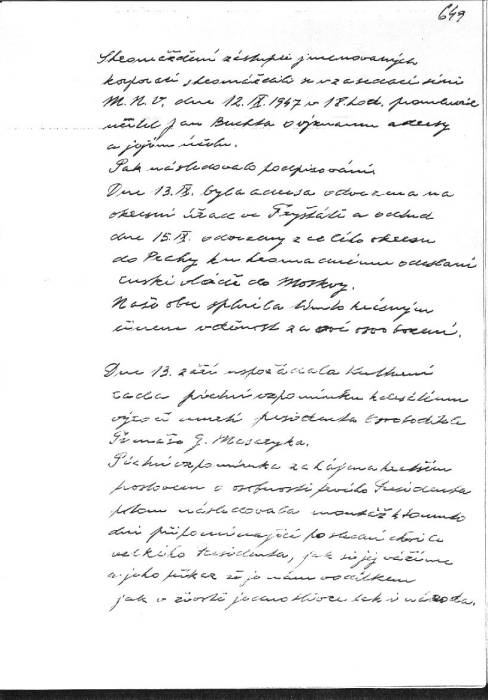 649
Shromáždění zástupci jmenovaných
korporací shromáždili se v zasedací síni
M.N.V. dne 12.IX.1947 v 18 hod. promluvil
učitel Jan Buchta o významu adresy
a jejím účelu.
Pak následovalo podpisování.
Dne 13.IX. byla adresa odvezena na
okresní úřad ve Fryštátě a odtud
dne 15.IX. odvezeny z celého okresu
do Prahy ku hromadnému odeslání
ruské vládě do Moskvy.
Naše obec splnila tímto krásným
činem vděčnost za své osvobození.
Dne 13. září uspořádala Kulturní
rada pietní vzpomínku k desátému
výročí úmrtí presidenta Osvoboditele
Tomáše G. Masaryka.
Pietní vzpomínka zahájena kratším
proslovem o osobnosti prvého Presidenta
potom následovala montáž k tomuto
dni připomínající poslední chvíle
velkého Presidenta, jak si jej vážíme
a jeho příkaz že je nám vodítkem
jak v životě jednotlivce tak i národa.